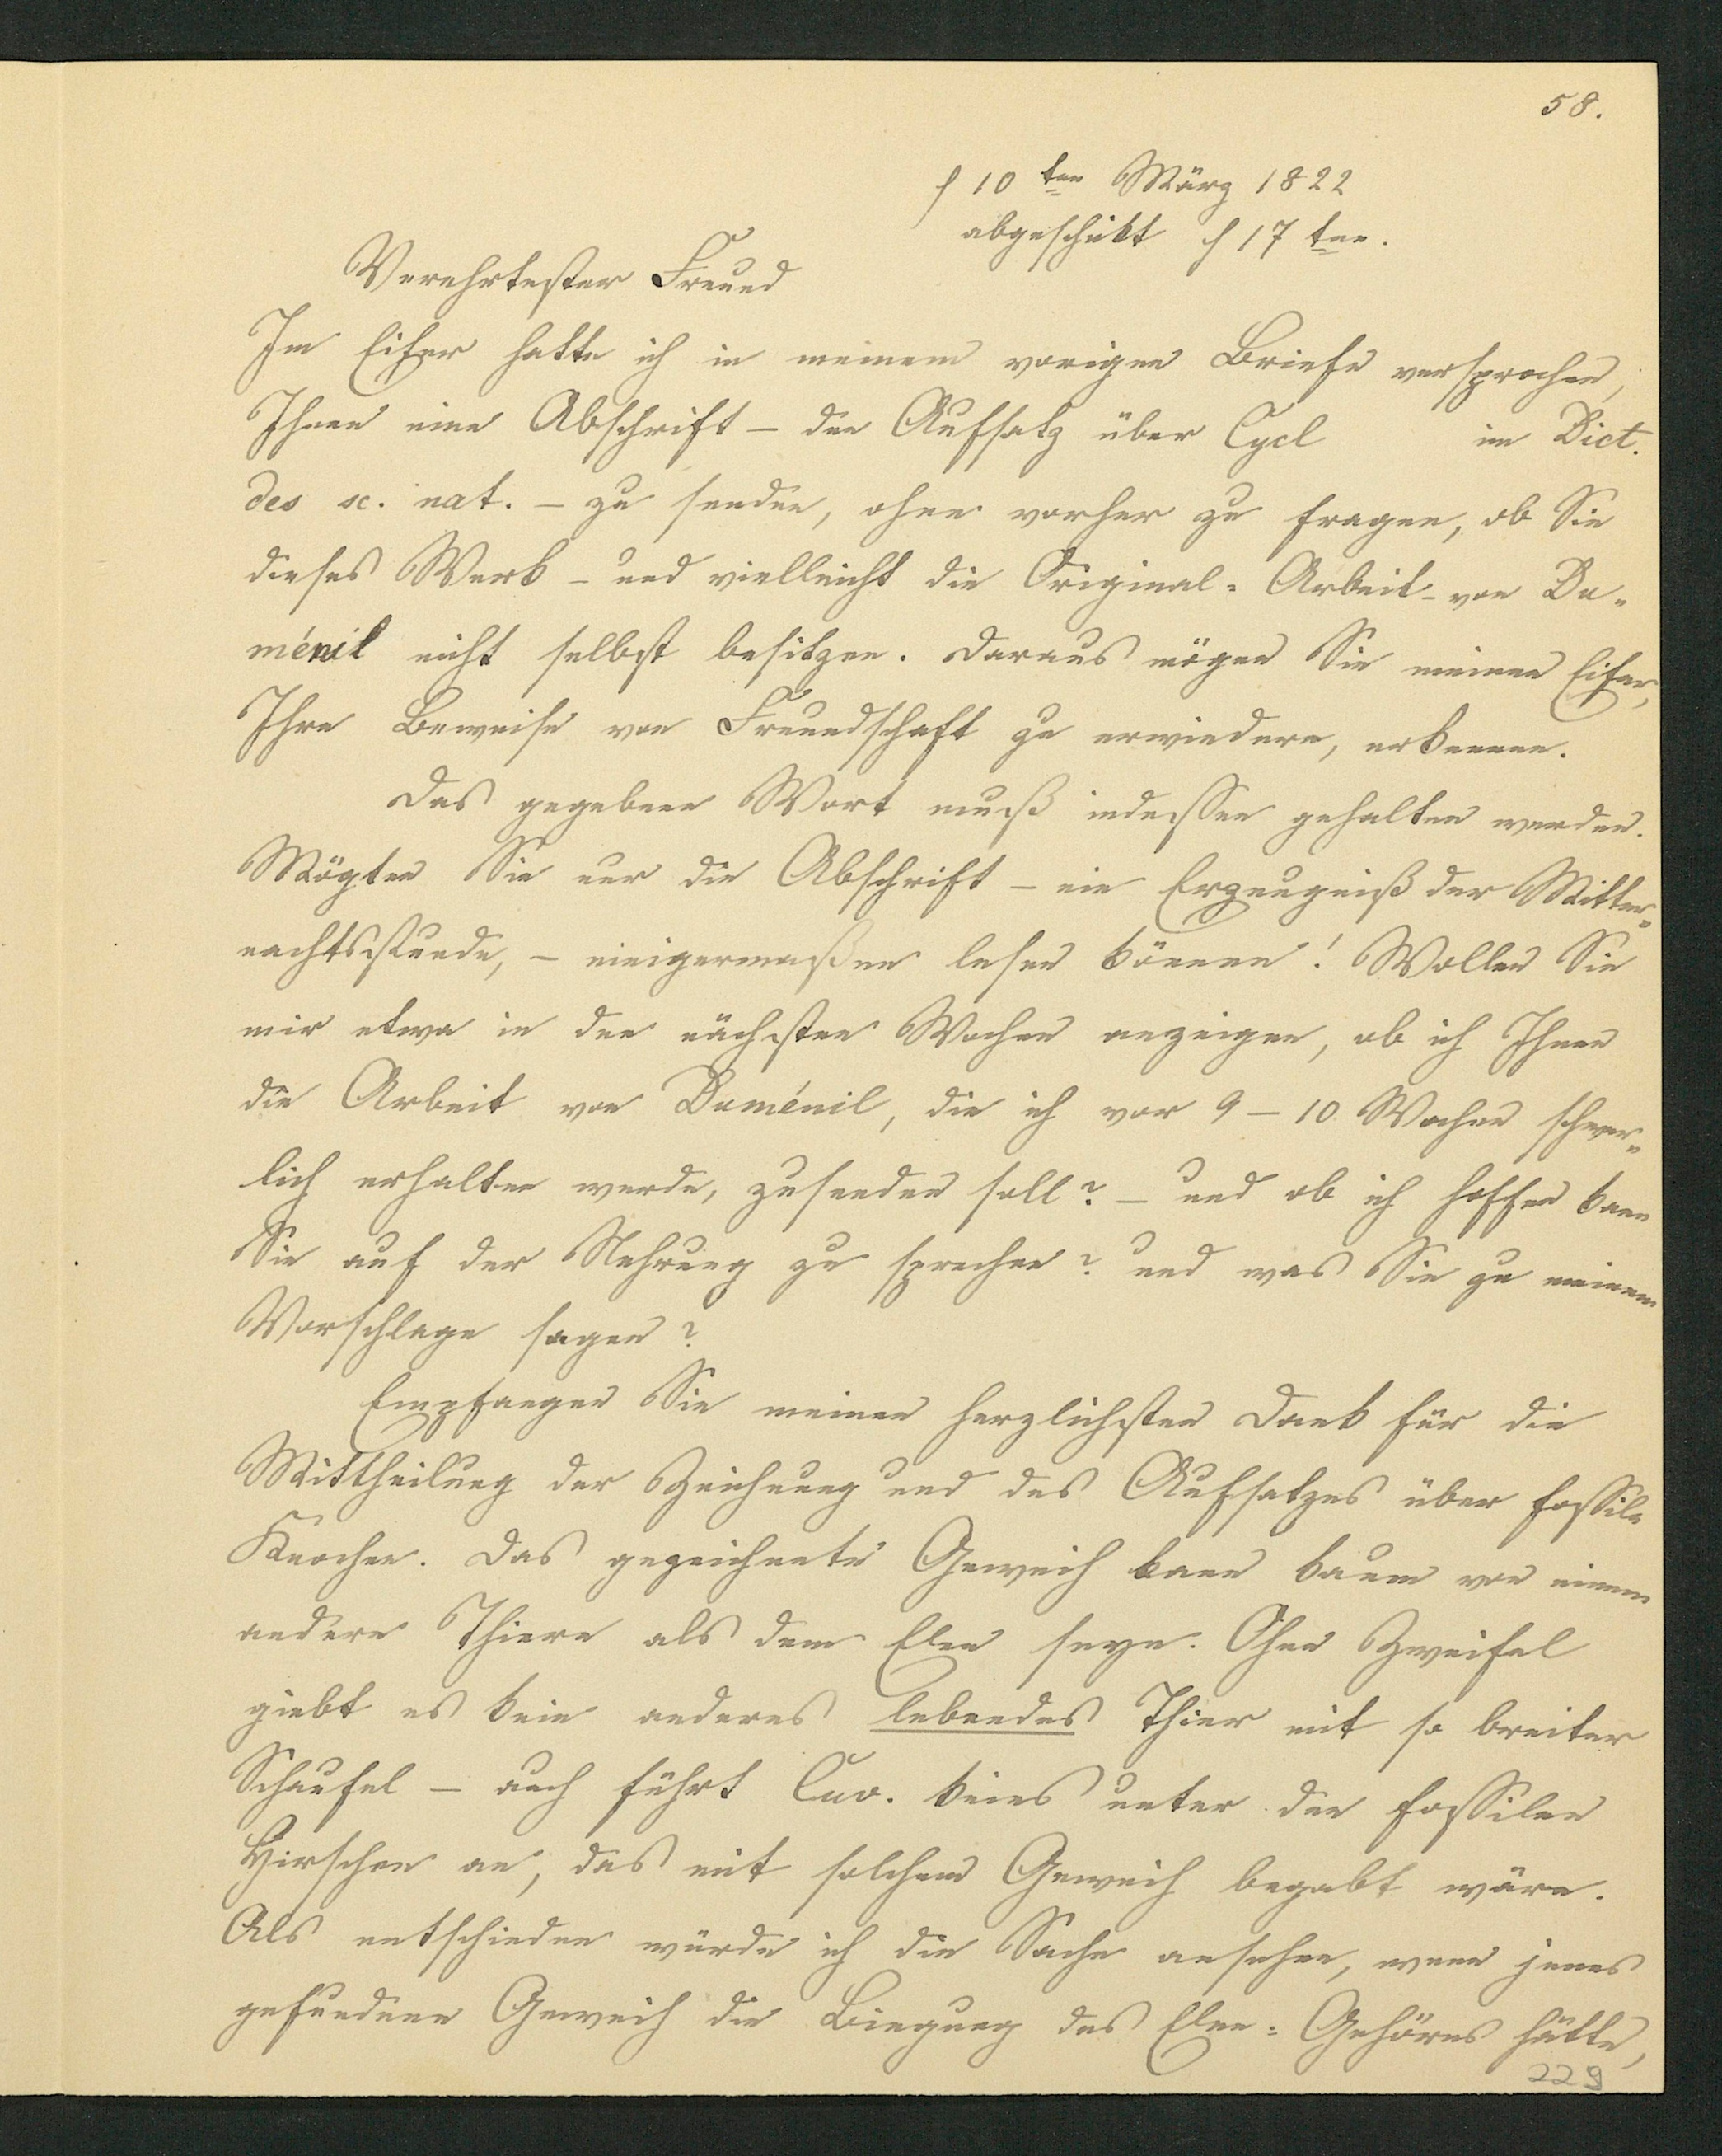 58.
d 10ten März 1822
abgeschikt d 17ten.
Verehrtester Freund
Im Eifer hatte ich in meinem vorigen Briefe versprochen,
Ihnen eine Abschrift - den Aufsatz über Cycl im Dict.
des sc. nat. - zu senden, ohne vorher zu fragen, ob Sie
dieses Werk - und vielleicht die Original-Arbeit - von Du-
ménil nicht selbst besitzen. Daraus mögen Sie meinen Eifer,
Ihre Beweise von Freundschaft zu erwiedern, erkennen.
Das gegebene Wort muß indessen gehalten werden.
Mögten Sie nur die Abschrift - ein Erzeugniß der Mitter-
nachtsstunde, - einigermaßen lesen können! Wollen Sie
mir etwa in den nächsten Wochen anzeigen, ob ich Ihnen
die Arbeit von Duménil, die ich vor 9-10 Wochen schwer-
lich erhalten werde, zusenden soll? - und ob ich hoffen kann
Sie auf der Nehrung zu sprechen? und was Sie zu meinem
Vorschlage sagen?
Empfangen Sie meinen herzlichsten Dank für die
Mittheilung der Zeichnung und des Aufsatzes über fossile
Knochen. Das gezeichnete Geweih kann kaum von einem
andern Thiere als dem Elen seyn. Ohne Zweifel
giebt es kein anderes lebendes Thier mit so breiter
Schaufel - auch führt Cuv. keines unter den fossilen
Hirschen an, das mit solchem Geweih begabt wäre.
Als entschieden würde ich die Sache ansehen, wenn jenes
gefundene Geweih die Biegung des Elen-Gehörns hätte,
229